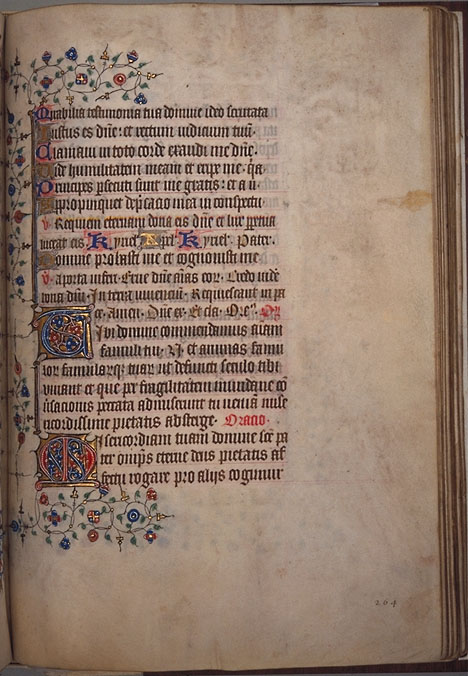 Mirabilia testimonia tua domine ideo scrutata
Justus es dñe: et rectum iudicium tuũ.
Clamaui in toto corde exaudi me dñe.
Vide humilitatem meam et eripe me. q̃a
Principes persecuti sunt me gratis: et a u.
Appropinquet dep̃catio mea in conspectu
v. Requiem eternam dona eis dñe et lux perpetua
luceat eis Kyriel. Xpel. Kyriel. Pater.
Domine probasti me et cognouisti me
v. a porta inferi. Erue dñe aĩas eor. Credo uidẽ
bona dñi. In terra uiuencium. Requiescant in pa
ce. Amen. Dñe ex. Et cla. Ore. Or
Tibi domine commendamus aĩam
famuli tui. N. et animas famu
lorum famularumq tuarum ut defuncti seculo tibi
uiuant et que per fragilitatem mundane cõ
uersacionis peccata admiserunt tu uenia mise
ricordissime pietatis absterge. Oracio.
Misericordiam tuam domine sc̃e pa
ter omp̃s eterne deus pietatis af
fectu rogare pro alijs cogimur
264